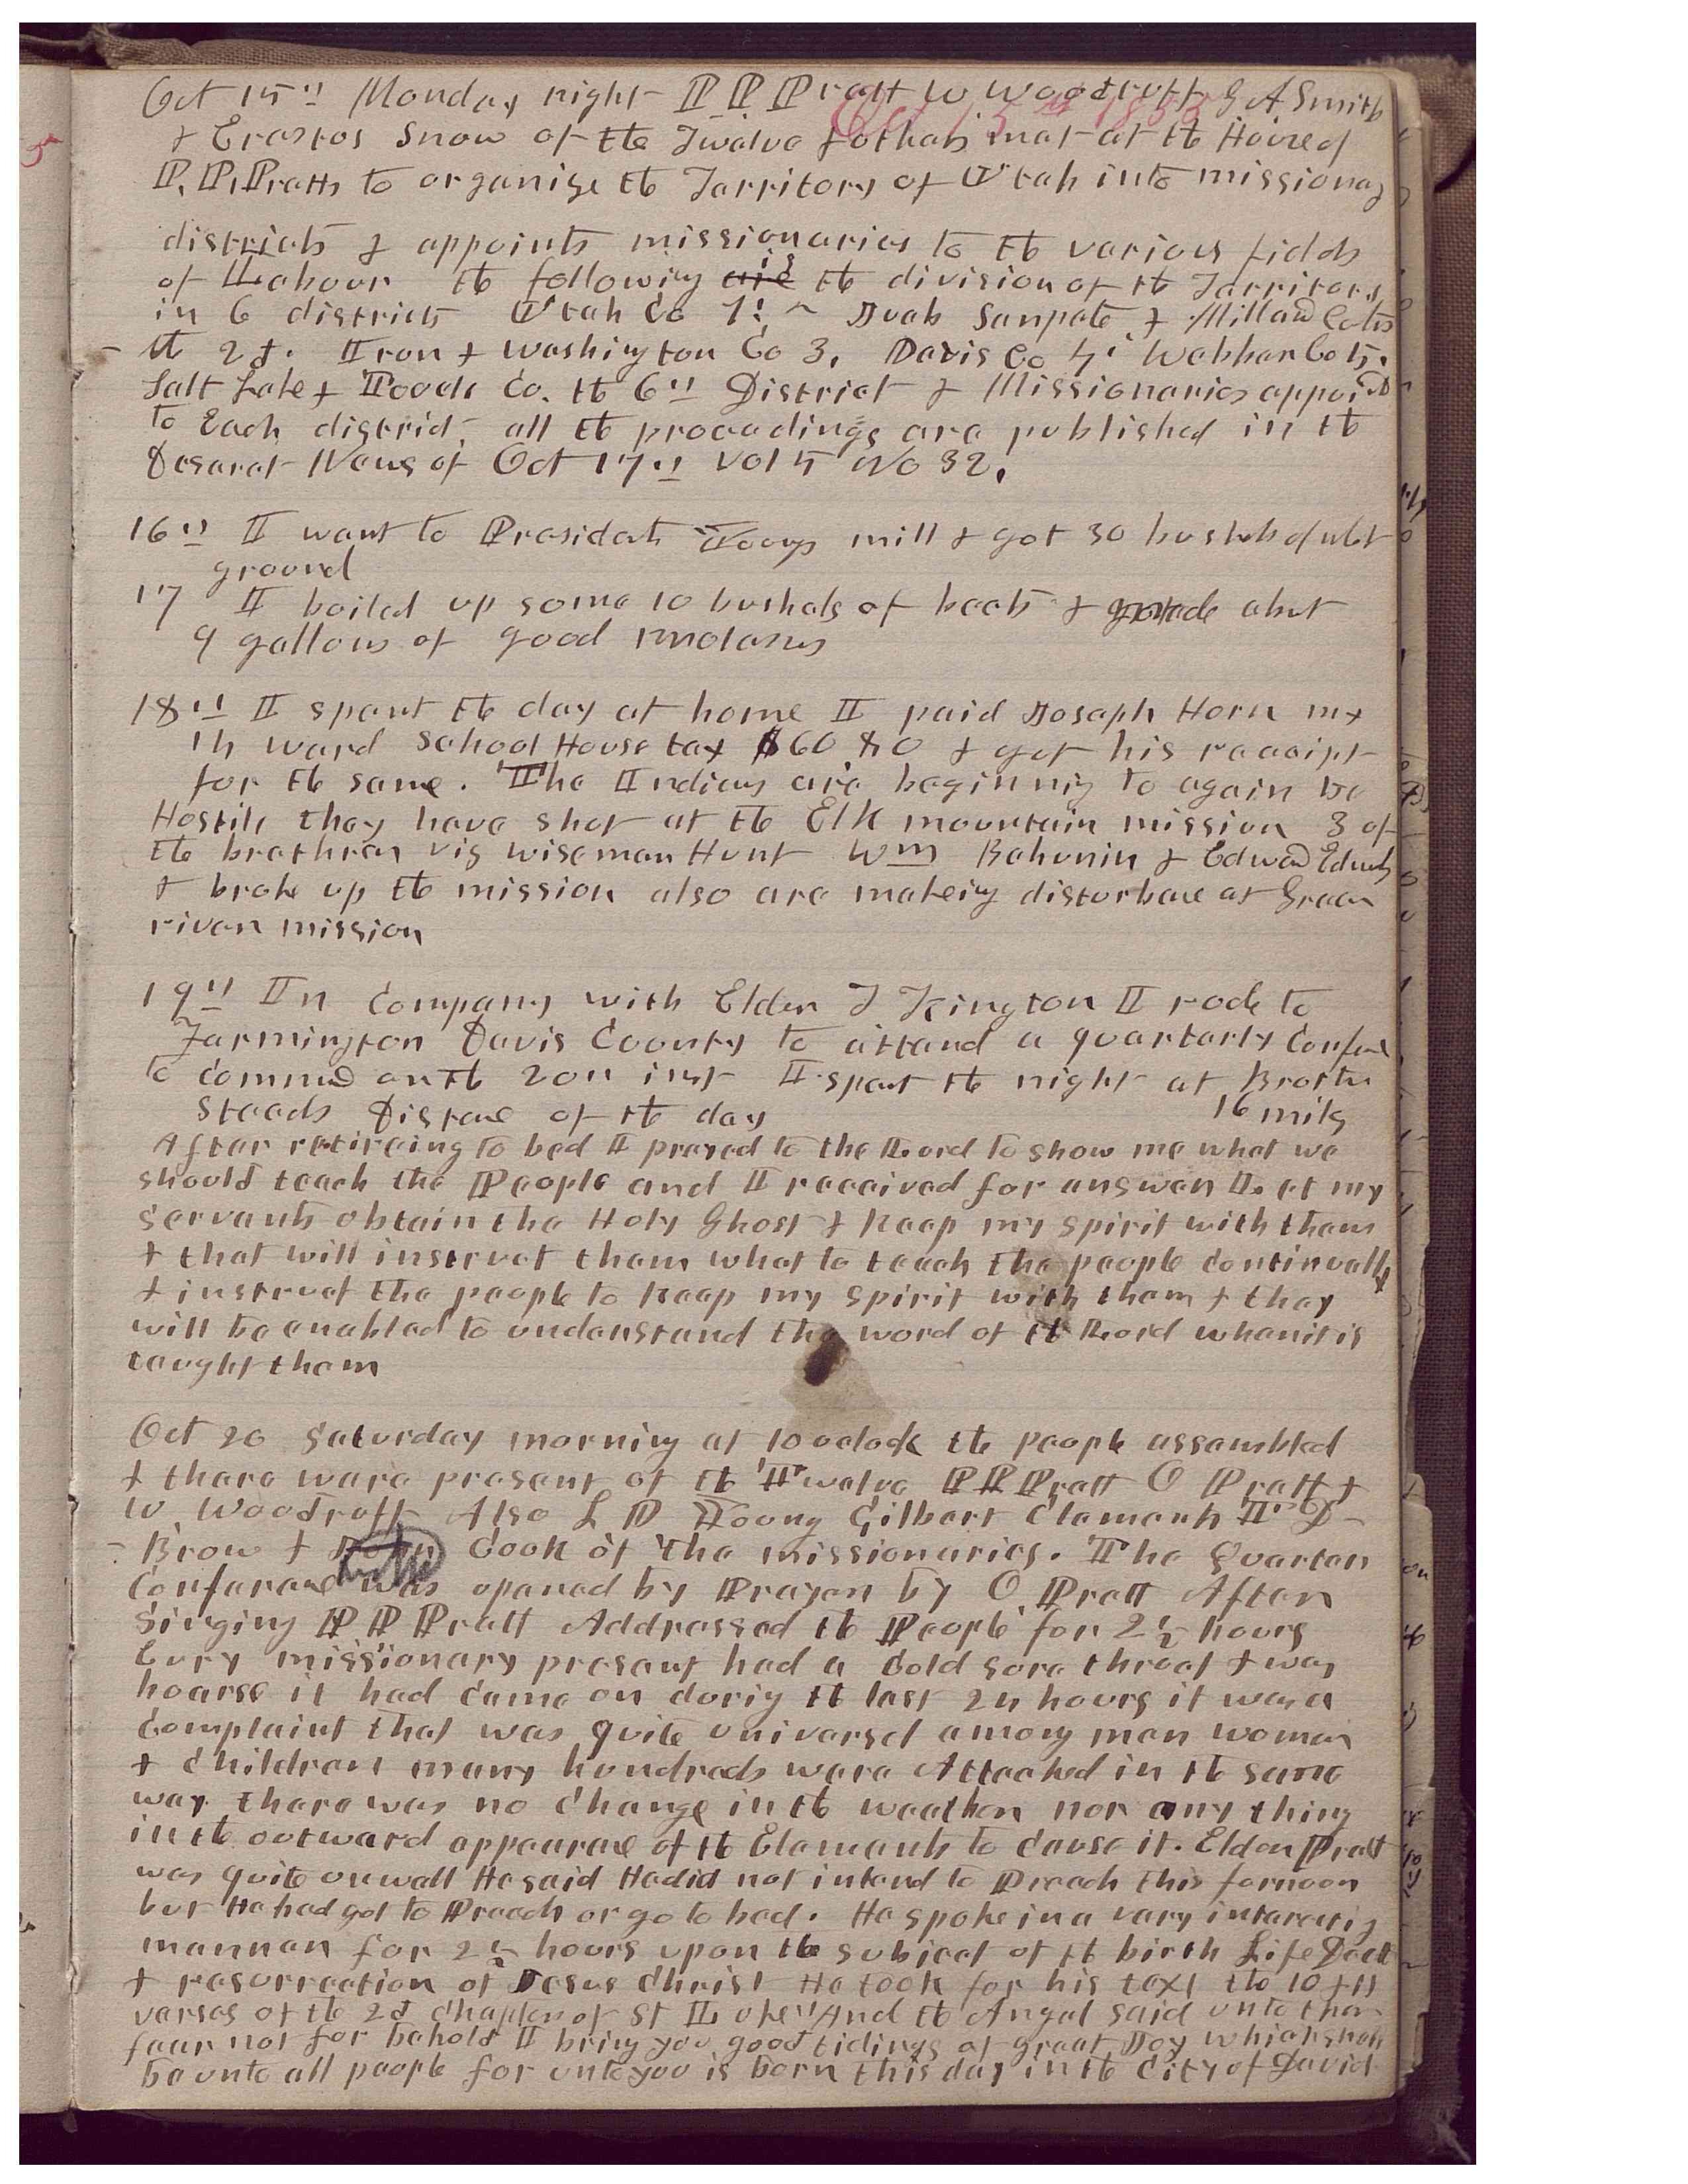 Oct 15th Monday night P P Pratt W Woodruff G A Smith
& Erastus Snow of the Twelve & others met at the House of
P. P. Pratts to organize the Territory of Utah into missionary
districts & appoints missionaries to the various fields
of Labour the following are is the division of the Territory
in 6 districts Utah Co 1st Juab Sanpete & Millard Cotis
the 2d. Iron & Washington Co 3, Davis Co 4th Webber Co 5.
Salt Lake & Tooele Co. the 6th District & Missionaries appoited
to Each district, all the proceedings are published in the
Deseret News of Oct 17th Vol 5 No 32.
16th I went to Presidets Youngs mill & got 30 bushels of wht
ground
17 I boiled up some 10 bushels of beets & made abut
9 gallons of good molasses
18th I spent the day at home I paid Joseph Horn my
14 ward School House tax $60 80 & got his receipt
for the same. The Indians are beginnig to again be
Hostile they have shot at the Elk mountain mission 3 of
the brethren viz wiseman Hunt Wm Behunin & Edward Edwds
& broke up the mission also are makeing disturbance at Green
river mission
19th In Company with Elder T Kington I rode to
Farmington Davis County to attend a quarterly Confere
to commence on the 20th inst I spent the night at Brother
Steeds Distance of the day 16 mils
After retireing to bed I prayed to the Lord to show me what we
should teach the People and I received for answer Let my
servants obtain the Holy Ghost & keep my spirit with them
& that will instruct them what to teach the people continually
& instruct the people to keep my spirit with them & they
will be enabled to understand the word of the Lord when it is
taught them
Oct 20 Saturday morning at 10 oclock the people assembled
& there were present of the Twelve P P Pratt O Pratt &
W. Woodruff Also L D Young Gilbert Clements T D
Brow & Cook of the missionaries. The Quarter
Conferance was opened by Prayer by O Pratt After
Singing P P Pratt Addressed the People for 2½ hours
Every missionary present had a Cold sore throat & was
hoarse it had came on durig the last 24 hours it was a
Complaint that was quite universal among men women
& Children many hundreds were Attacked in the same
way there was no Change in the weather nor any thing
in the outward appearance of the Elements to cause it. Elder Pratt
was quite unwell He said He did not intend to Preach this fornoon
but He had got to Preach or go to bed. He spoke in a very interestig
manner for 2½ hours upon the subject of the birth Life Death
& resurrection of Jesus Christ He took for his text the 10 & 11
verses of the 2d Chapter of St Luke "And the Angel said unto them
fear not for behold I bring you good tidings of great Joy which shall
be unto all people for unto you is born this day in the City of David